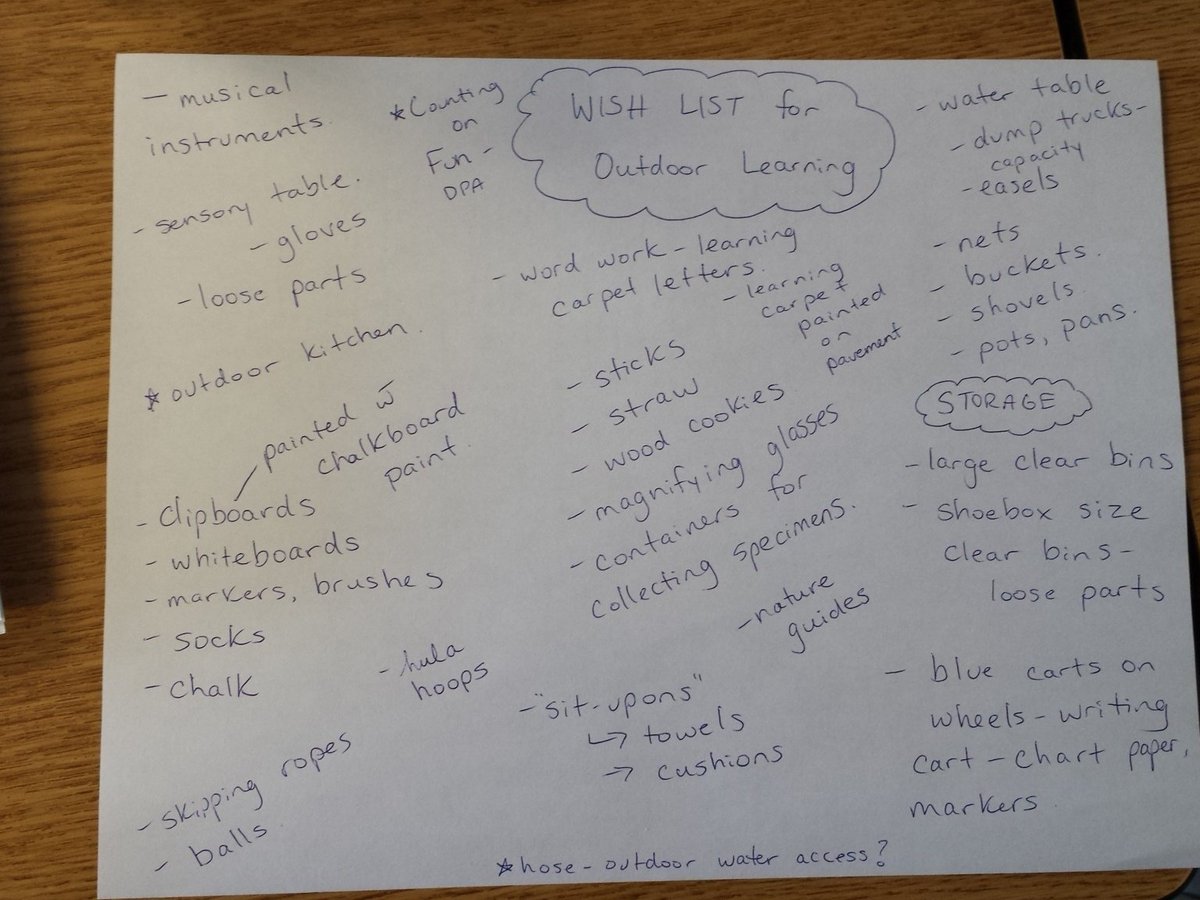 WISH LIST for
Outdoor Learning
- musical
instruments
*Counting
on
Fun -
DPA
- sensory table.
- gloves
- loose parts
* outdoor kitchen.
painted w̄
chalkboard
paint.
- clipboards
- whiteboards
- markers, brushes
- socks
- chalk
- hula
hoops
- skipping ropes
- balls
- word work - learning
carpet letters.
- learning
carpet
painted
on
pavement
- sticks
- straw
- wood cookies
- magnifying glasses
- containers for
collecting specimens.
- nature
guides
- "sit-upons"
↳ towels
→ cushions
- water table
- dump trucks -
capacity
- easels
- nets
- buckets.
- shovels
- pots, pans.
STORAGE
- large clear bins
- shoebox size
clear bins -
loose parts
- blue carts on
wheels - writing
cart - chart paper,
markers
* hose - outdoor water access?